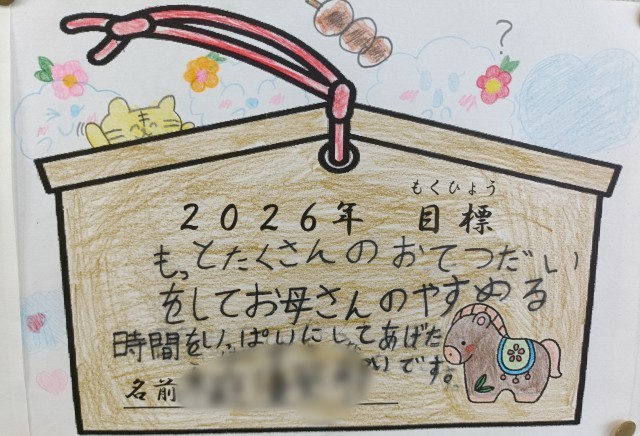 ?
もくひょう
2026年 目標
もっとたくさんのおてつだい
をしてお母さんのやすめる
時間をいっぱいにしてあげた
いです。
名前